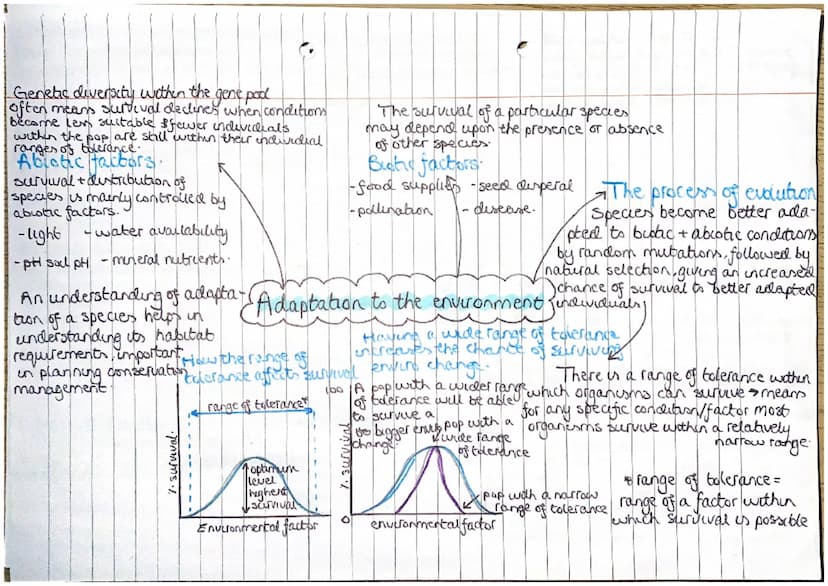 Genetic diversity within the gene pool
Often means survival declines when conditions
become less suitable & fewer individuals
within the pop are still within their individual
ranges of tolerance.
Abiotic factors.
survival + distribution of
species is mainly controlled by
abiotic factors.
- light - water availability
- pH soil pH - mineral nutrients.
The survival of a particular species
may depend upon the presence or absence
of other species.
Biotic factors.
- food supplies - seed disperal
- pollination - disease.
The process of evolution
Species become better ada-
pted to biotic + abiotic conditions
by random mutations, followed by
natural selection, giving an increased
chance of survival to better adapted
individuals
Adaptation to the environment
An understanding of adapta-
tion of a species helps in
understanding its habitat
requirements, important
in planning conservation
management.
How the range of
tolerance affects survival
range of tolerance*
% survival.
optimum
level
highest
survival
Environmental factor
Having a wide range of tolerance
increases the chance of surviving
enviro change.
100
A pop with a wider range
of tolerance will be able
to survive a
bigger enviro
change.
pop with a
wide range
of tolerance
% survival
pop with a narrow
range of tolerance
0
environmental factor
There is a range of tolerance within
which organisms can survive → means
for any specific condition/factor most
organisms survive within a relatively
narrow range.
* range of tolerance =
range of a factor within
which survival is possible